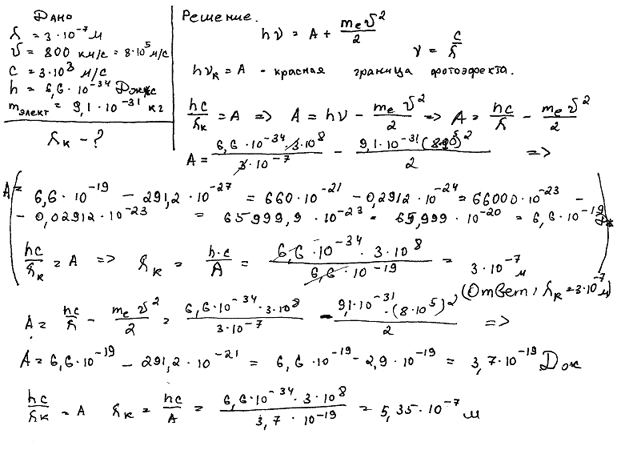 Дано
λ = 3·10⁻⁷ м
v = 800 км/с = 8·10⁵ м/с
c = 3·10³ м/с
h = 6,6·10⁻³⁴ Дж·с
m элект = 9,1·10⁻³¹ кг
λк - ?
Решение.
hν = A + mₑv²/2
ν = c/λ
hνк = A - красная граница фотоэффекта.
hc/λк = A => A = hν - mₑv²/2 => A = hc/λ - mₑv²/2
A = 6,6·10⁻³⁴·3·10⁸/3·10⁻⁷ - 9,1·10⁻³¹(8·10⁵)²/2 =>
A = 6,6·10⁻¹⁹ - 291,2·10⁻²⁷ = 660·10⁻²¹ - 0,2912·10⁻²⁴ = 66000·10⁻²³ -
- 0,02912·10⁻²³ = 65999,9·10⁻²³ = 65,999·10⁻²⁰ = 6,6·10⁻¹⁹ Дж
hc/λк = A => λк = h·c/A = 6,6·10⁻³⁴·3·10⁸/6,6·10⁻¹⁹ = 3·10⁻⁷ м
(Ответ: λк = 3·10⁻⁷ м)
A = hc/λ - mₑv²/2 = 6,6·10⁻³⁴·3·10⁸/3·10⁻⁷ - 9,1·10⁻³¹·(8·10⁵)²/2 =>
A = 6,6·10⁻¹⁹ - 291,2·10⁻²¹ = 6,6·10⁻¹⁹ - 2,9·10⁻¹⁹ = 3,7·10⁻¹⁹ Дж
hc/λк = A λк = hc/A = 6,6·10⁻³⁴·3·10⁸/3,7·10⁻¹⁹ = 5,35·10⁻⁷ м